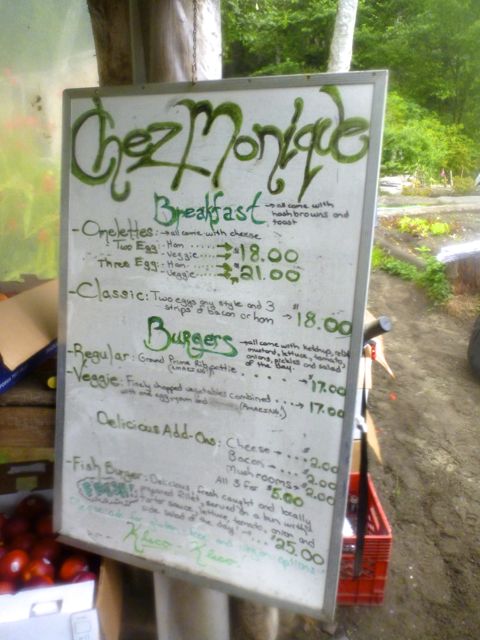 Chez Monique
Breakfast → all come with
hashbrowns and
toast
- Omelettes: → all come with cheese
Two Egg: - Ham ...... → $18.00
- Veggie ..... →
Three Egg: - Ham ..... → $21.00
- Veggie ..... →
- Classic: Two eggs any style and 3
strips of bacon or ham → $18.00
Burgers → all come with ketchup,
mustard, lettuce, tomato,
onions, pickles and salad
of the Day.
- Regular: Ground Prime Rib pattie
. . . . . → $17.00
- Veggie: Finely chopped vegetables combined
with one egg (Amazing) → 17.00
Delicious Add-Ons: Cheese → $2.00
Bacon → $2.00
Mushrooms → $2.00
All 3 For $5.00
- Fish Burger: Delicious, fresh caught and locally
prepared fillet, served on a bun with
tartar sauce, lettuce, tomato, onion and
side salad of the day → $25.00
and vegan options
Kleco - Kleco